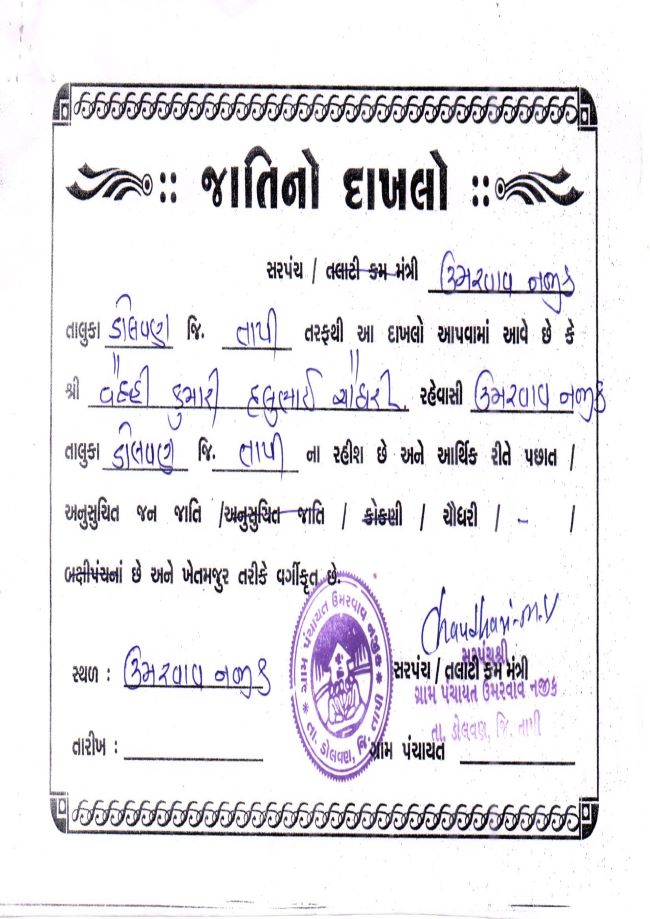 જાતિનો દાખલો
સરપંચ / તલાટી કમ મંત્રી ઉમરવાવ નજીક
તાલુકા ડોલવણ જિ. તાપી તરફથી આ દાખલો આપવામાં આવે છે કે
શ્રી કુમારી હલુભાઈ ચૌધરી રહેવાસી ઉમરવાવ નજીક
તાલુકા ડોલવણ જિ. તાપી ના રહીશ છે અને આર્થિક રીતે પછાત /
અનુસુચિત જન જાતિ / અનુસુચિત જાતિ / કોકણી / ચૌધરી / - /
બક્ષીપંચનાં છે અને ખેતમજુર તરીકે વર્ગીકૃત છે.
ગ્રામ પંચાયત ઉમરવાવ નજીક
તા. ડોલવણ, જિ. તાપી
Chaudhari.M.V
સ્થળ : ઉમરવાવ નજીક
સરપંચ / તલાટી કમ મંત્રી
સરપંચશ્રી
ગ્રામ પંચાયત ઉમરવાવ નજીક
તા. ડોલવણ, જિ. તાપી
તારીખ :
ગ્રામ પંચાયત